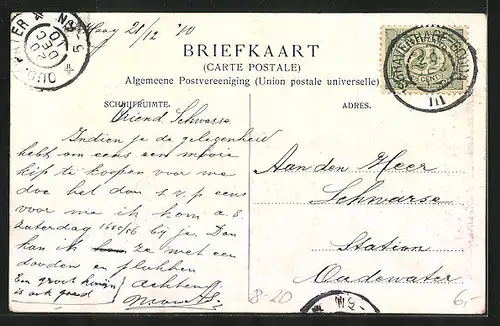 Haag 21/12 '10
BRIEFKAART
(CARTE POSTALE)
Algemeene Postvereeniging (Union postale universelle)
SCHRIJFRUIMTE.
ADRES.
Vriend Schwarse
Indien je de gelegenheid
hebt om eens een mooie
kip te koopen voor me
doe het dan s.v.p eens
voor me ik kom a.s.
Zaterdag bij je. Dan
kan ik ze met een
dooden en plukken
Een groot konijn
is ook goed
achtend
Aan den Heer
Schwarse
Station
Oudewater
8-20
6,